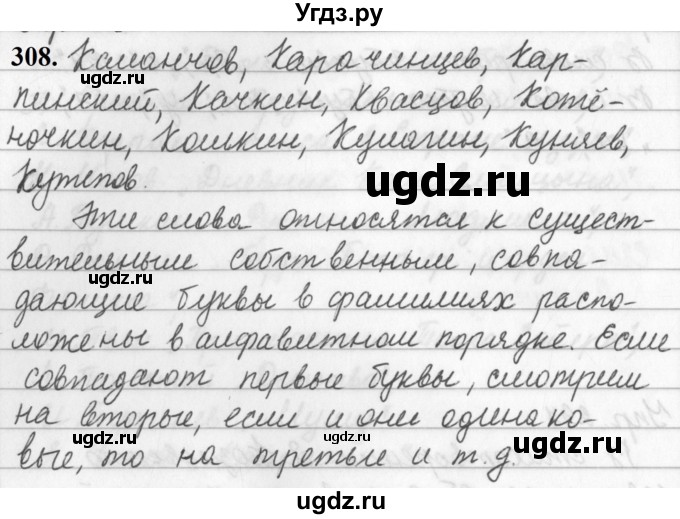 Угdз.ру
308. Каманчов, Карачинцев, Кар-
пинский, Качкин, Квасцов, Котё-
ночкин, Кошкин, Кулагин, Куняев,
Кутепов.
Эти слова относятся к сущест-
вительным собственным, совпа-
дающие буквы в фамилиях распо-
ложены в алфавитном порядке. Если
совпадают первые буквы, смотрим
на вторые, если и они одинако-
вые, то на третьи и т.д.
ugdz.ru
ugdz.ru
ugdz.ru
ugdz.ru
ugdz.ru
ugdz.ru
ugdz.ru
ugdz.ru
ugdz.ru
ugdz.ru